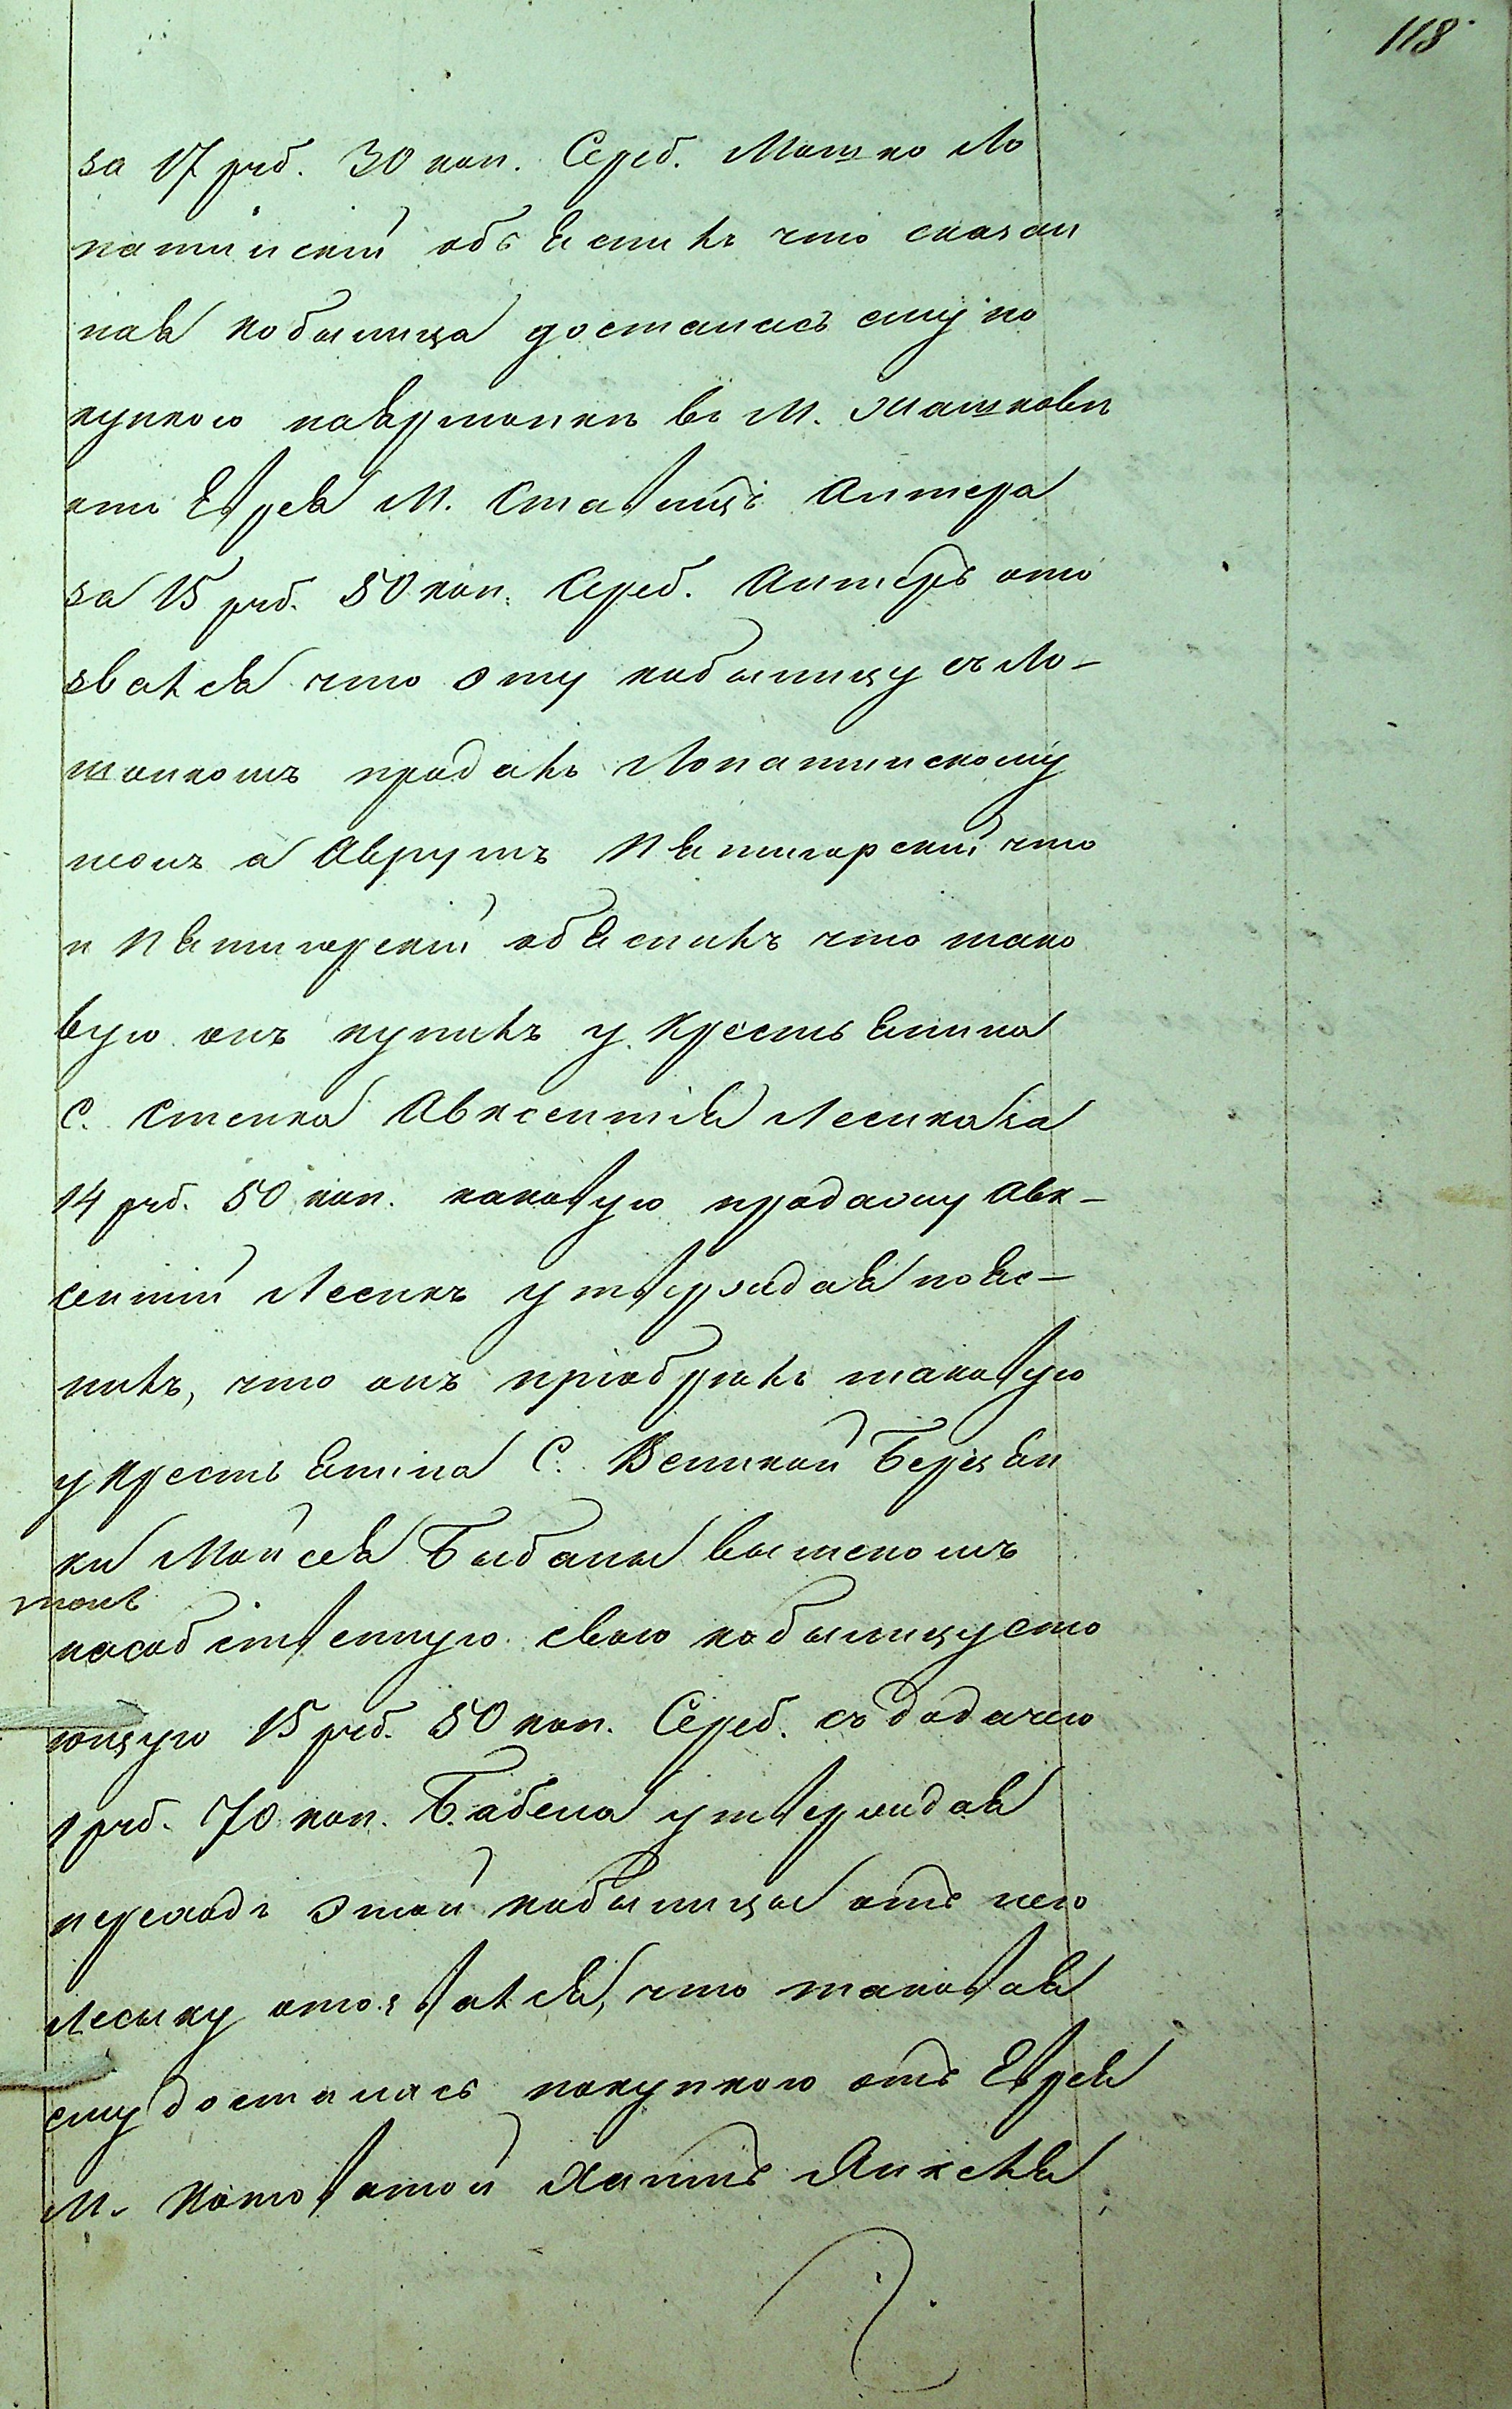 118
за 17 руб. 30 коп. Сереб. Мошко Ло
патинскій объяснилъ что сказан
ная кобылица досталась ему по
купкою на ярмонкѣ въ М. Жашковѣ
отъ Еврея М. Ставищъ Антера
за 15 руб. 50 коп. Сереб. Антеръ ото
звался что эту кобылицу съ Ло-
шонкомъ продалъ Лопатинскому
тонъ а Аврумъ Пятигорскій что
и Пятигорскій объяснилъ что тако
вую онъ купилъ у Крестьянина
С. Стенка Авксентія Лесика за
14 руб. 50 коп. каковую продажу Авк-
сентій Лесикъ утверждая пояс-
нилъ, что онъ пріобрѣлъ таковую
у Крестьянина С. Великой Березян
ки Мойсея Бабаны вытеномъ
на собственную свою кобылицу сто
ющую 15 руб. 50 коп. Сереб. съ додачею
1 руб. 70 коп. Бабена утверждая
переходъ этой кобылицы отъ него
Лесыку отозвался, что таковая
ему досталась покупкою отъ Еврея
М. Коноватой Хаимъ Янкеля